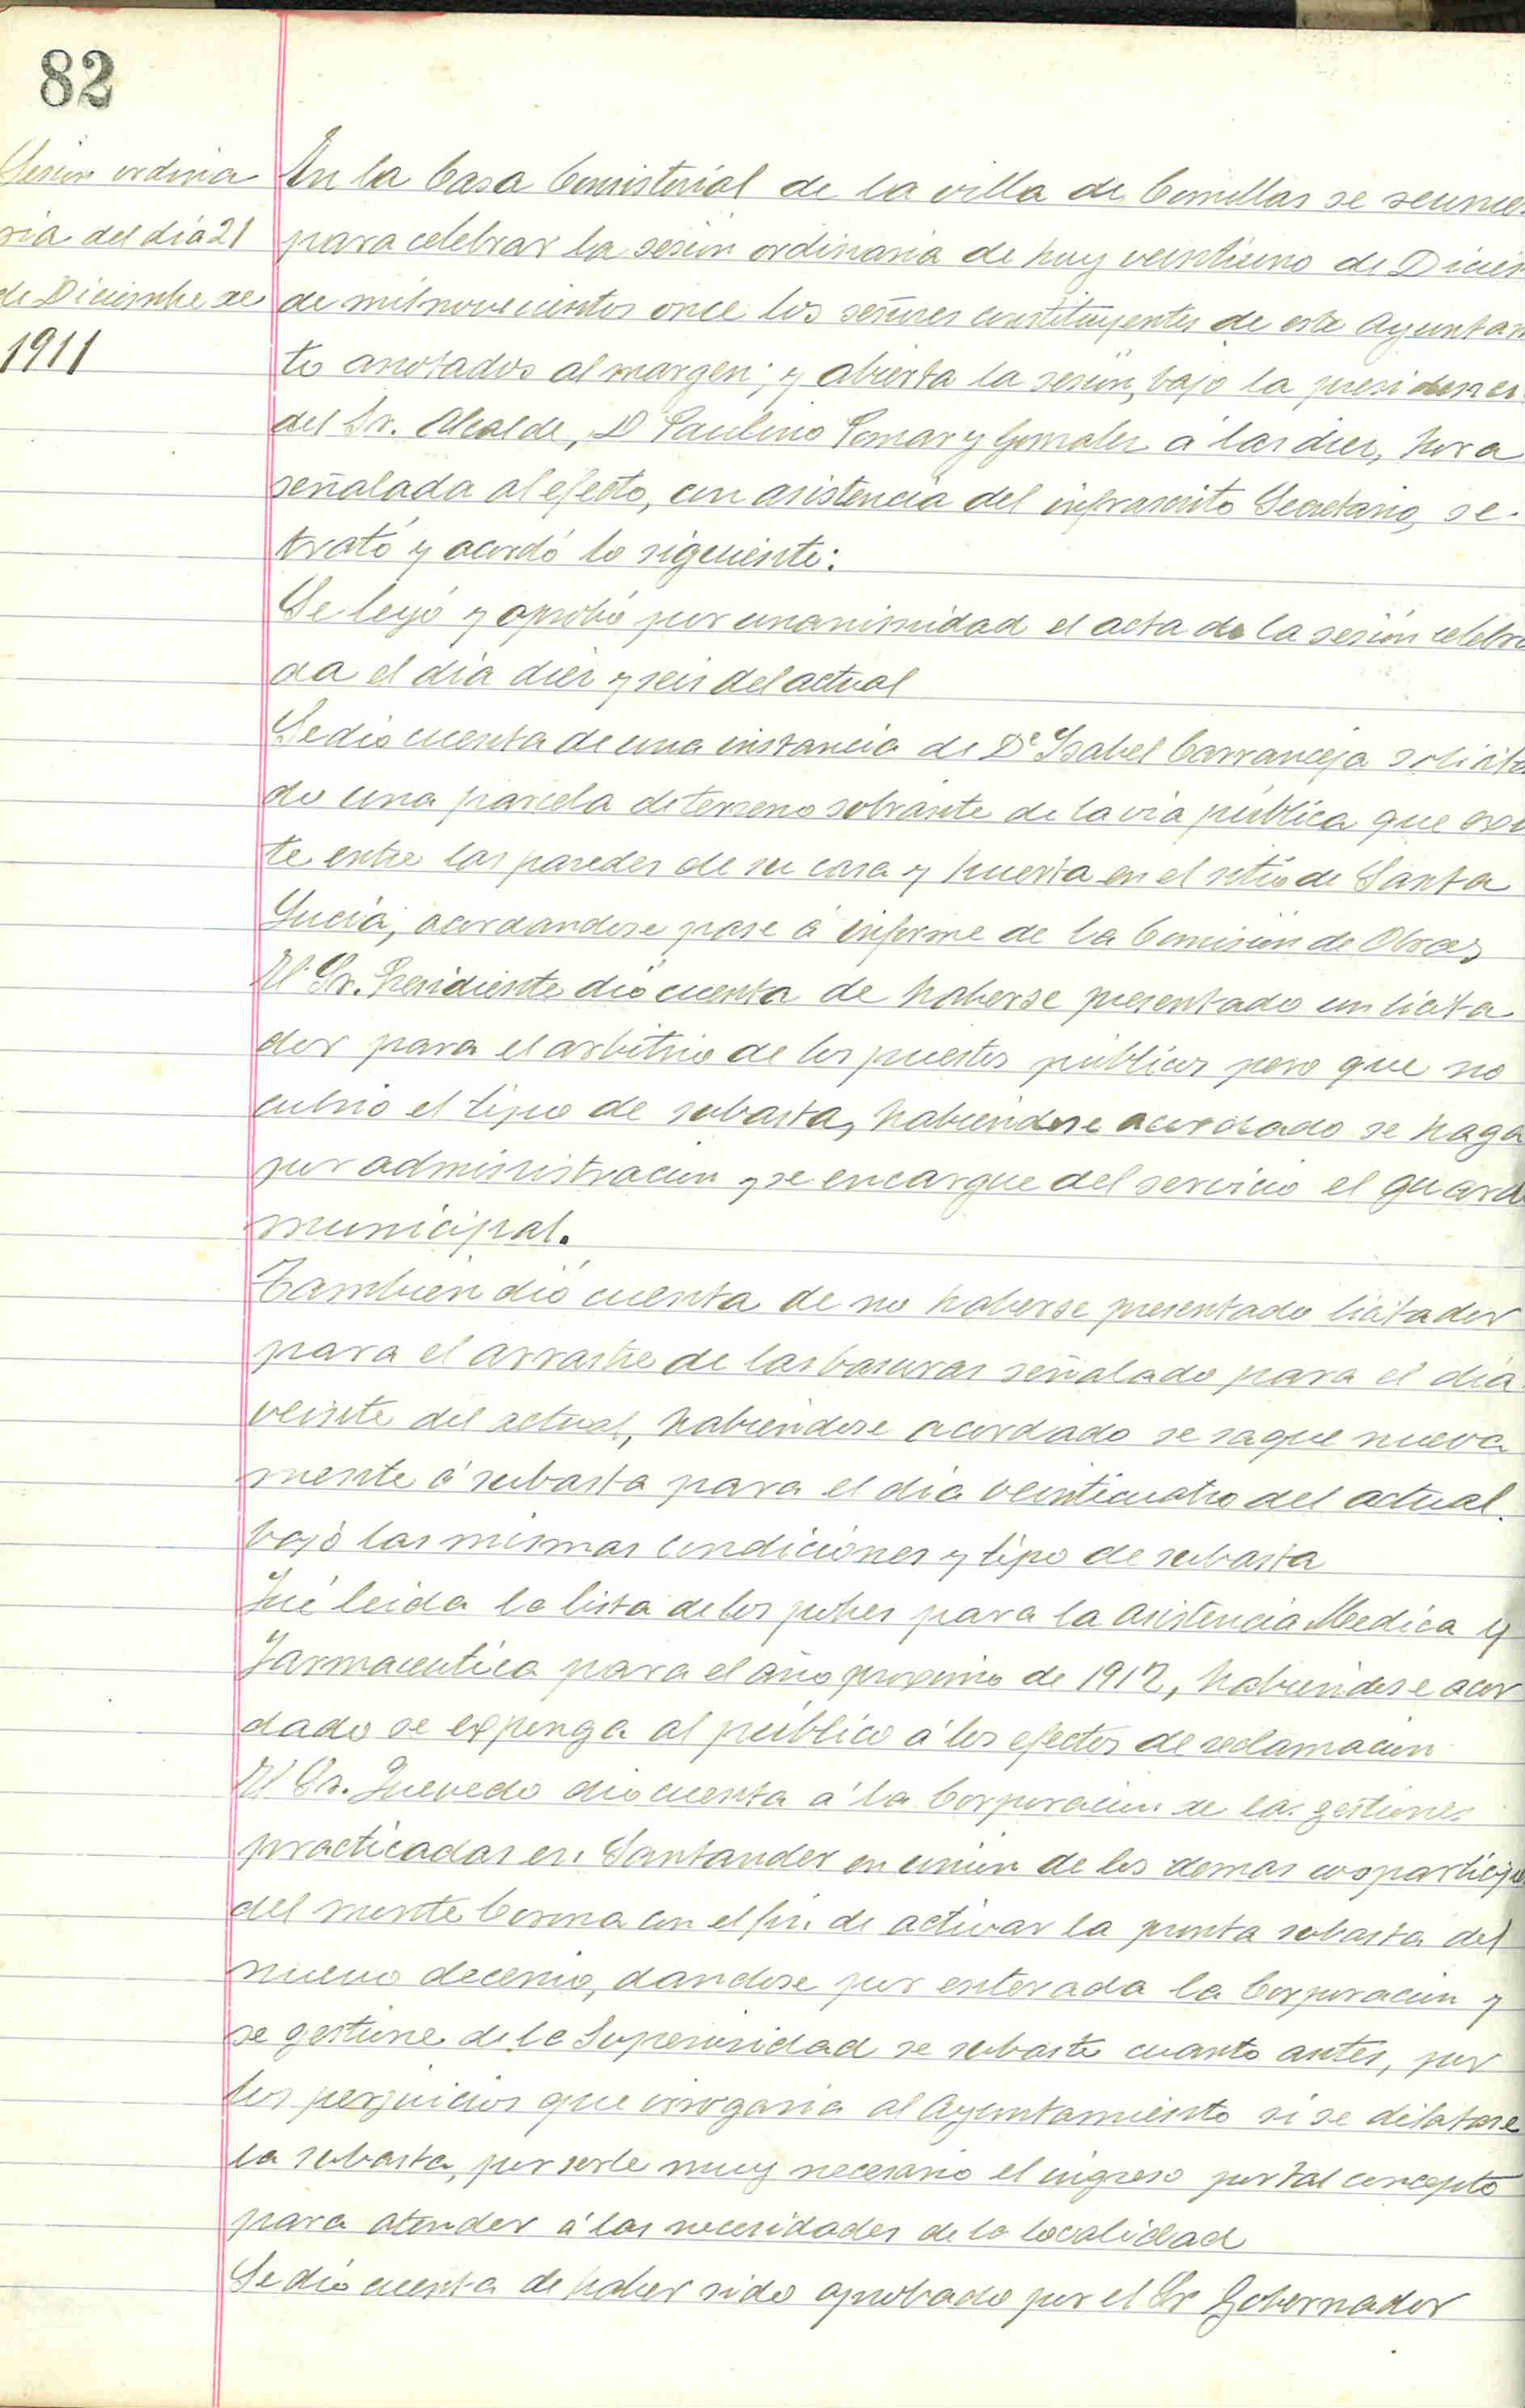 82
Sesion ordina
ria del día 21
de Diciembre de
1911
En la Casa Consistorial de la villa de Comillas se reunie
para celebrar la sesion ordinaria de hoy veintiuno de Diciem
de mil novecientos once los señores constituyentes de este Ayuntam
to anotados al margen; y abierta la sesion, bajo la presidencia
del Sr. Alcalde, D Paulino Pomar y Gonzalez á las diez, hora
señalada al efecto, con asistencia del infrascrito Secretario, se
trató y acordó lo siguiente:
Se leyó y aprobó por unanimidad el acta de la sesión celebra
da el día diez y seis del actual
Se dió cuenta de una instancia de Dª Isabel Carranceja solicitan
do una parcela de terreno sobrante de la via pública que exis
te entre las paredes de su casa y huerta en el sitio de Santa
Lucia, acordandose pase á informe de la Comisión de Obras
El Sr. Presidente dió cuenta de haberse presentado un licita
dor para el arbitrio de los puestos públicos pero que no
cubrio el tipo de subasta, habiendose acordado se haga
por administracion y se encargue del servicio el guarda
municipal.
Tambien dió cuenta de no haberse presentado licitador
para el arrastre de las basuras señalado para el día
veinte del actual, habiendose acordado se saque nueva
mente á subasta para el día veinticuatro del actual.
bajo las mismas condiciones y tipo de subasta
Fué leida la lista de los pobres para la asistencia Medica y
Farmaceutica para el año proximo de 1912, habiendose acor
dado se exponga al público á los efectos de reclamacion
El Sr. Quevedo dio cuenta á la Corporacion de las gestiones
practicadas en Santander en union de los demas coparticipes
del monte Corona con el fin de activar la pronta subasta del
nuevo decenio, dandose por enterada la Corporacion y
se gestione de la Superioridad se subaste cuanto antes, por
los perjuicios que irrogaria al Ayuntamiento si se dilatase
la subasta, por serle muy necesario el ingreso por tal concepto
para atender á las necesidades de la localidad
Se dió cuenta de haber sido aprobado por el Sr Gobernador